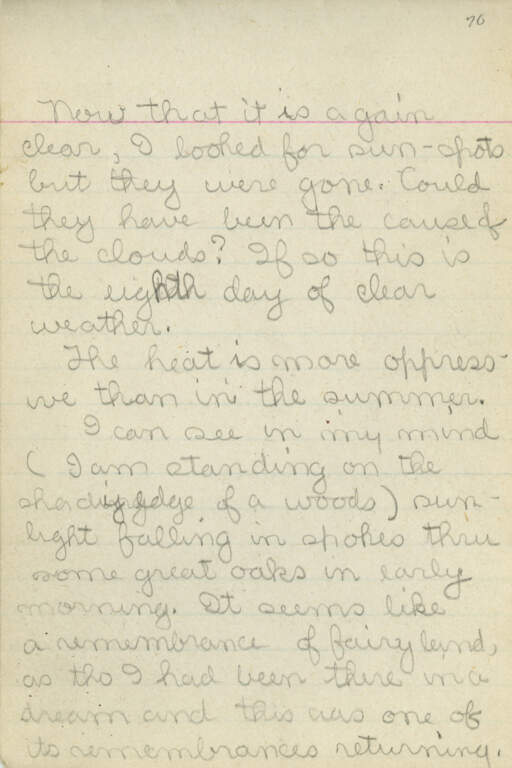 76
Now that it is again
clear, I looked for sun-spots
but they were gone. Could
they have been the cause of
the clouds? If so this is
the eighth day of clear
weather.
The heat is more oppress-
ive than in the summer.
I can see in my mind
( I am standing on the
shady edge of a woods) sun-
light falling in spokes thru
some great oaks in early
morning. It seems like
a remembrance of fairyland,
as tho I had been there in a
dream and this was one of
its remembrances returning.